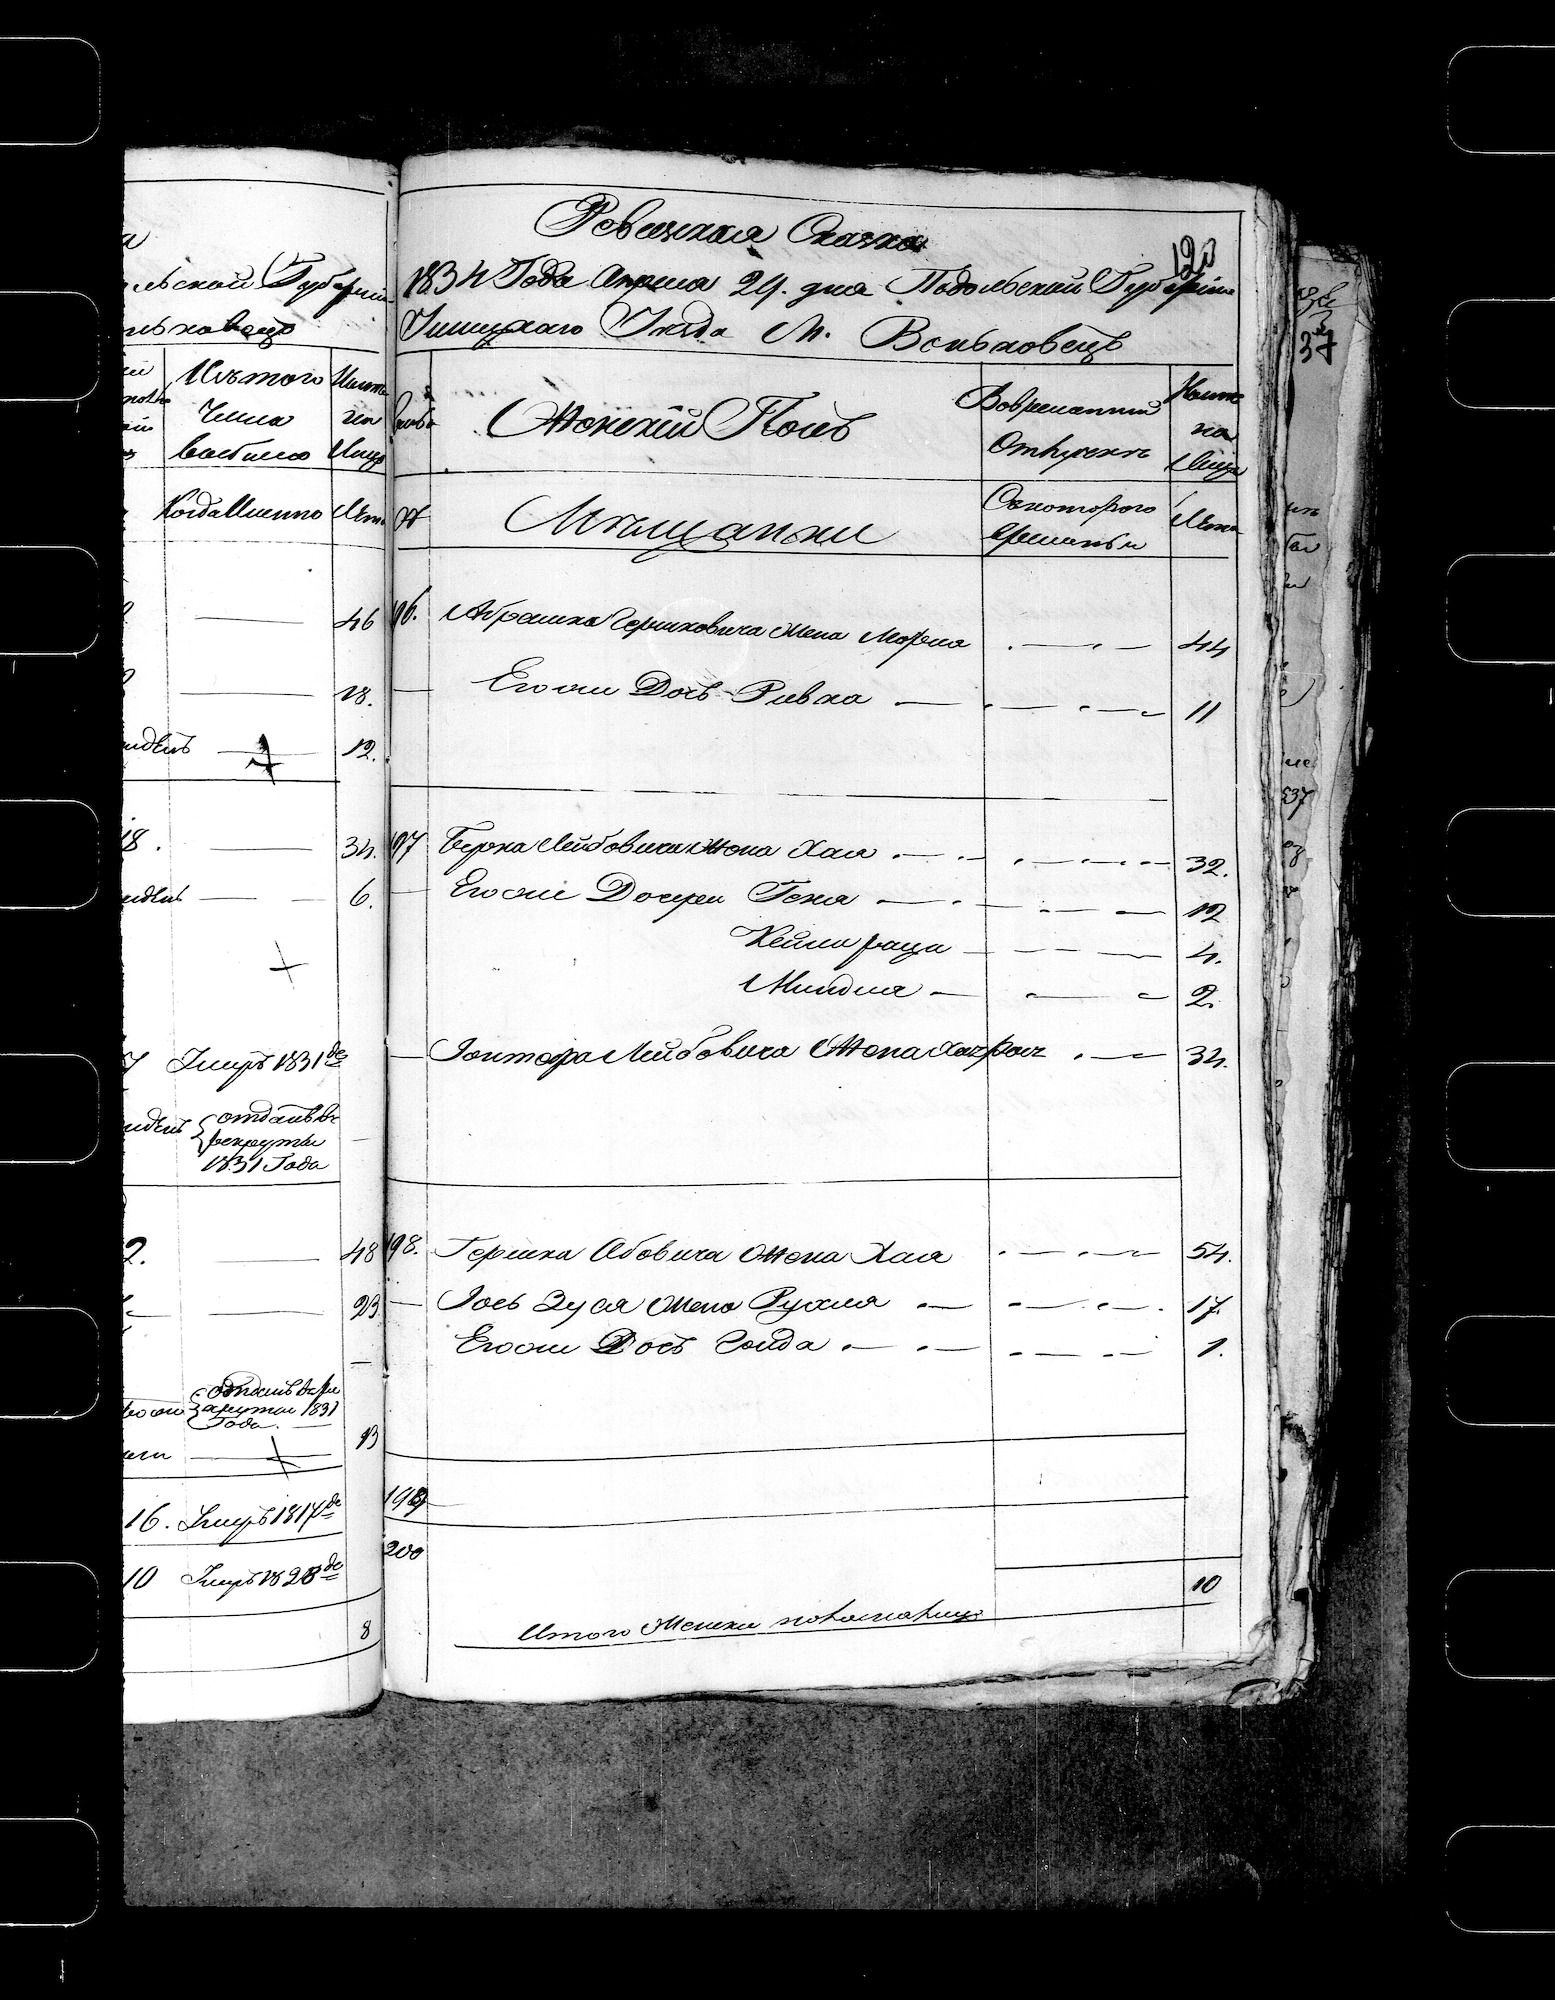 льской Губерніи
ньковецъ
Изъ того
Числа
выбыло
Ныне
на
Лицо
Когда Именно
Лета
46
18.
12.
18.
34.
6.
Умеръ 1831 го
отданъ въ
рекруты
1831 Года
48
23
отданъ въ ре
круты 1831
Года
13
16. Умеръ 1817 го
10 Умеръ 1828 го
8
120
Ревизская Сказка
1834 Года Апреля 29. дня Подольской Губерніи
Ушицкаго Уезда М. Воньковецъ
Женскій Полъ
Вовременной
Отлучкѣ
Ныне
на
Лицо
№
Мѣщанки
Съкоторого
времяни
Лета
196. Абрашка Гершковича Жена Марья 44
Его же Дочь Ривка 11
197 Берка Лейбовича Жена Хая 32.
Его же Дочери Геня 12
Кейла раца 4.
Миндля 2.
Лейбовича Жена 34.
198. Гершка Абовича Жена Хая 54.
Зуся Жена Рухля 17.
Его же Дочь Голда 1.
199
200
10
Итого Женска пола налицо
37